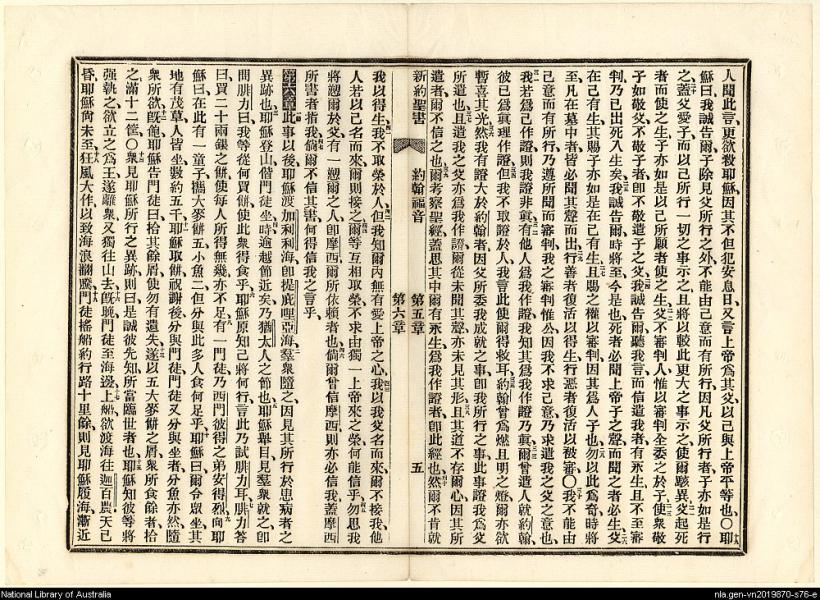 人聞此言、更欲殺耶穌、因其不但犯安息日、又言上帝爲其父、以己與上帝平等也、〇耶
穌曰、我誠告爾、子除見父所行之外、不能由己意而有所行、因凡父所行者、子亦如是行
之、蓋父愛子、而以己所行一切之事示之、且將以較此更大之事示之、使爾駭異、父起死
者而使之生、子亦如是、以己所願者使之生、父不審判人、惟以審判全委之於子、使衆敬
子如敬父、不敬子者、卽不敬遣子之父、我誠告爾、聽我言而信遣我者、有永生、且不至審
判、乃已出死入生矣、我誠告爾、時將至、今是也、死者必聞上帝子之聲、而聞之者必生、父
在己有生、其賜子亦如是在己有生、且賜之權以審判、因其爲人子也、勿以此爲奇、時將
至、凡在墓中者、皆必聞其聲而出、行善者復活以得生、行惡者復活以被審、〇我不能由
己意而有所行、乃遵所聞而審判、我之審判惟公、因我不求己意、乃求遣我之父之意也、
我若爲己作證、則我證非眞、有他人爲我作證、我知其爲我作證乃眞、爾曾遣人就約翰、
彼已爲眞理作證、但我不取證於人、我言此使爾得救耳、約翰曾爲燃且明之燈、爾亦欲
暫喜其光、然我有證大於約翰者、因父所委我成就之事、卽我所行之事、此事證我爲父
所遣也、且遣我之父、亦爲我作證、爾從未聞其聲、亦未見其形、且其道不存爾心、因其所
遣者、爾不信之也、爾考察聖經、蓋思其中爾有永生、爲我作證者、卽此經也、然爾不肯就
新約聖書 約翰福音 第五章 第六章 五
我以得生、我不取榮於人、但我知爾內無有愛上帝之心、我以我父名而來、爾不接我、他
人若以己名而來、爾則接之、爾等互相取榮、不求由獨一上帝來之榮、何能信乎、勿思我
將愬爾於父、有一愬爾之人、卽摩西、爾所依賴者也、倘爾曾信摩西、則亦必信我、蓋摩西
所書者指我、倘爾不信其書、何得信我之言乎、
第六章 此事以後、耶穌渡加利利海、卽提庇哩亞海、羣衆隨之、因見其所行於患病者之
異跡也、耶穌登山、偕門徒坐、時逾越節近矣、乃猶太人之節也、耶穌舉目、見羣衆就之、卽
問腓力曰、我等從何買餅使此衆得食乎、耶穌原知己將何行、言此乃試腓力耳、腓力答
曰、買二十兩銀之餅、使每人所得無幾、亦不足、有一門徒、乃西門彼得之弟安得烈、向耶
穌曰、在此有一童子、攜大麥餅五、小魚二、但分與此多人食何足乎、耶穌曰、爾令衆坐、其
地有茂草、人皆坐、數約五千、耶穌取餅祝謝後、分與門徒、門徒又分與坐者、分魚亦然、隨
衆所欲、旣飽、耶穌告門徒曰、拾其餘屑、使勿有遺失、遂以五大麥餅之屑、衆所食餘者、拾
之滿十二筐、〇衆見耶穌所行之異跡、則曰、是誠彼先知所當臨世者也、耶穌知彼等將
強執之、欲立之爲王、遂離衆、又獨往山去、旣晚、門徒至海邊、上船欲渡海往迦百農、天已
昏、耶穌尚未至、狂風大作、以致海浪翻騰、門徒搖船約行路十里餘、則見耶穌履海漸近
National Library of Australia
nla.gen-vn2019870-s76-e